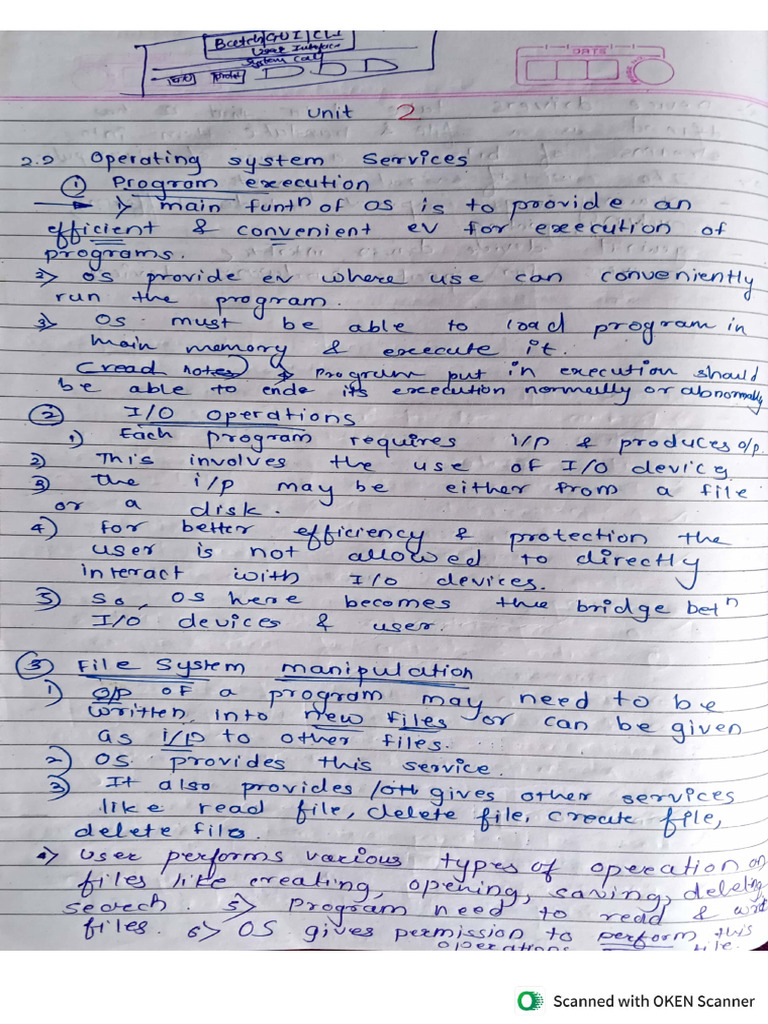 Batch GUI CLI
User Interface
System Call
DATE
Unit 2
2.2 Operating system services
① Program execution
→ 1> main funtⁿ of OS is to provide an
efficient & convenient ev for execution of
programs.
2> OS provide ev where use can conveniently
run the program.
3> OS must be able to load program in
main memory & execute it.
(read notes) 4> Program put in execution should
be able to ende its execution normally or abnormally
② I/O operations
1) Each program requires i/p & produces o/p.
2) This involves the use of I/O device
3) the i/p may be either from a file
or a disk.
4) for better efficiency & protection the
user is not allowed to directly
interact with I/O devices.
5) So, OS here becomes the bridge betⁿ
I/O devices & user.
③ File System manipulation
1) o/p of a program may need to be
written into new files or can be given
as i/p to other files.
2) OS provides this service.
3) It also provides gives other services
like read file, delete file, create file,
delete files.
4> User performs various types of operation on
files like creating, opening, saving, deleting
search. 5> Program need to read & writ
files. 6> OS gives permission to perform this
operations file.
Scanned with OKEN Scanner